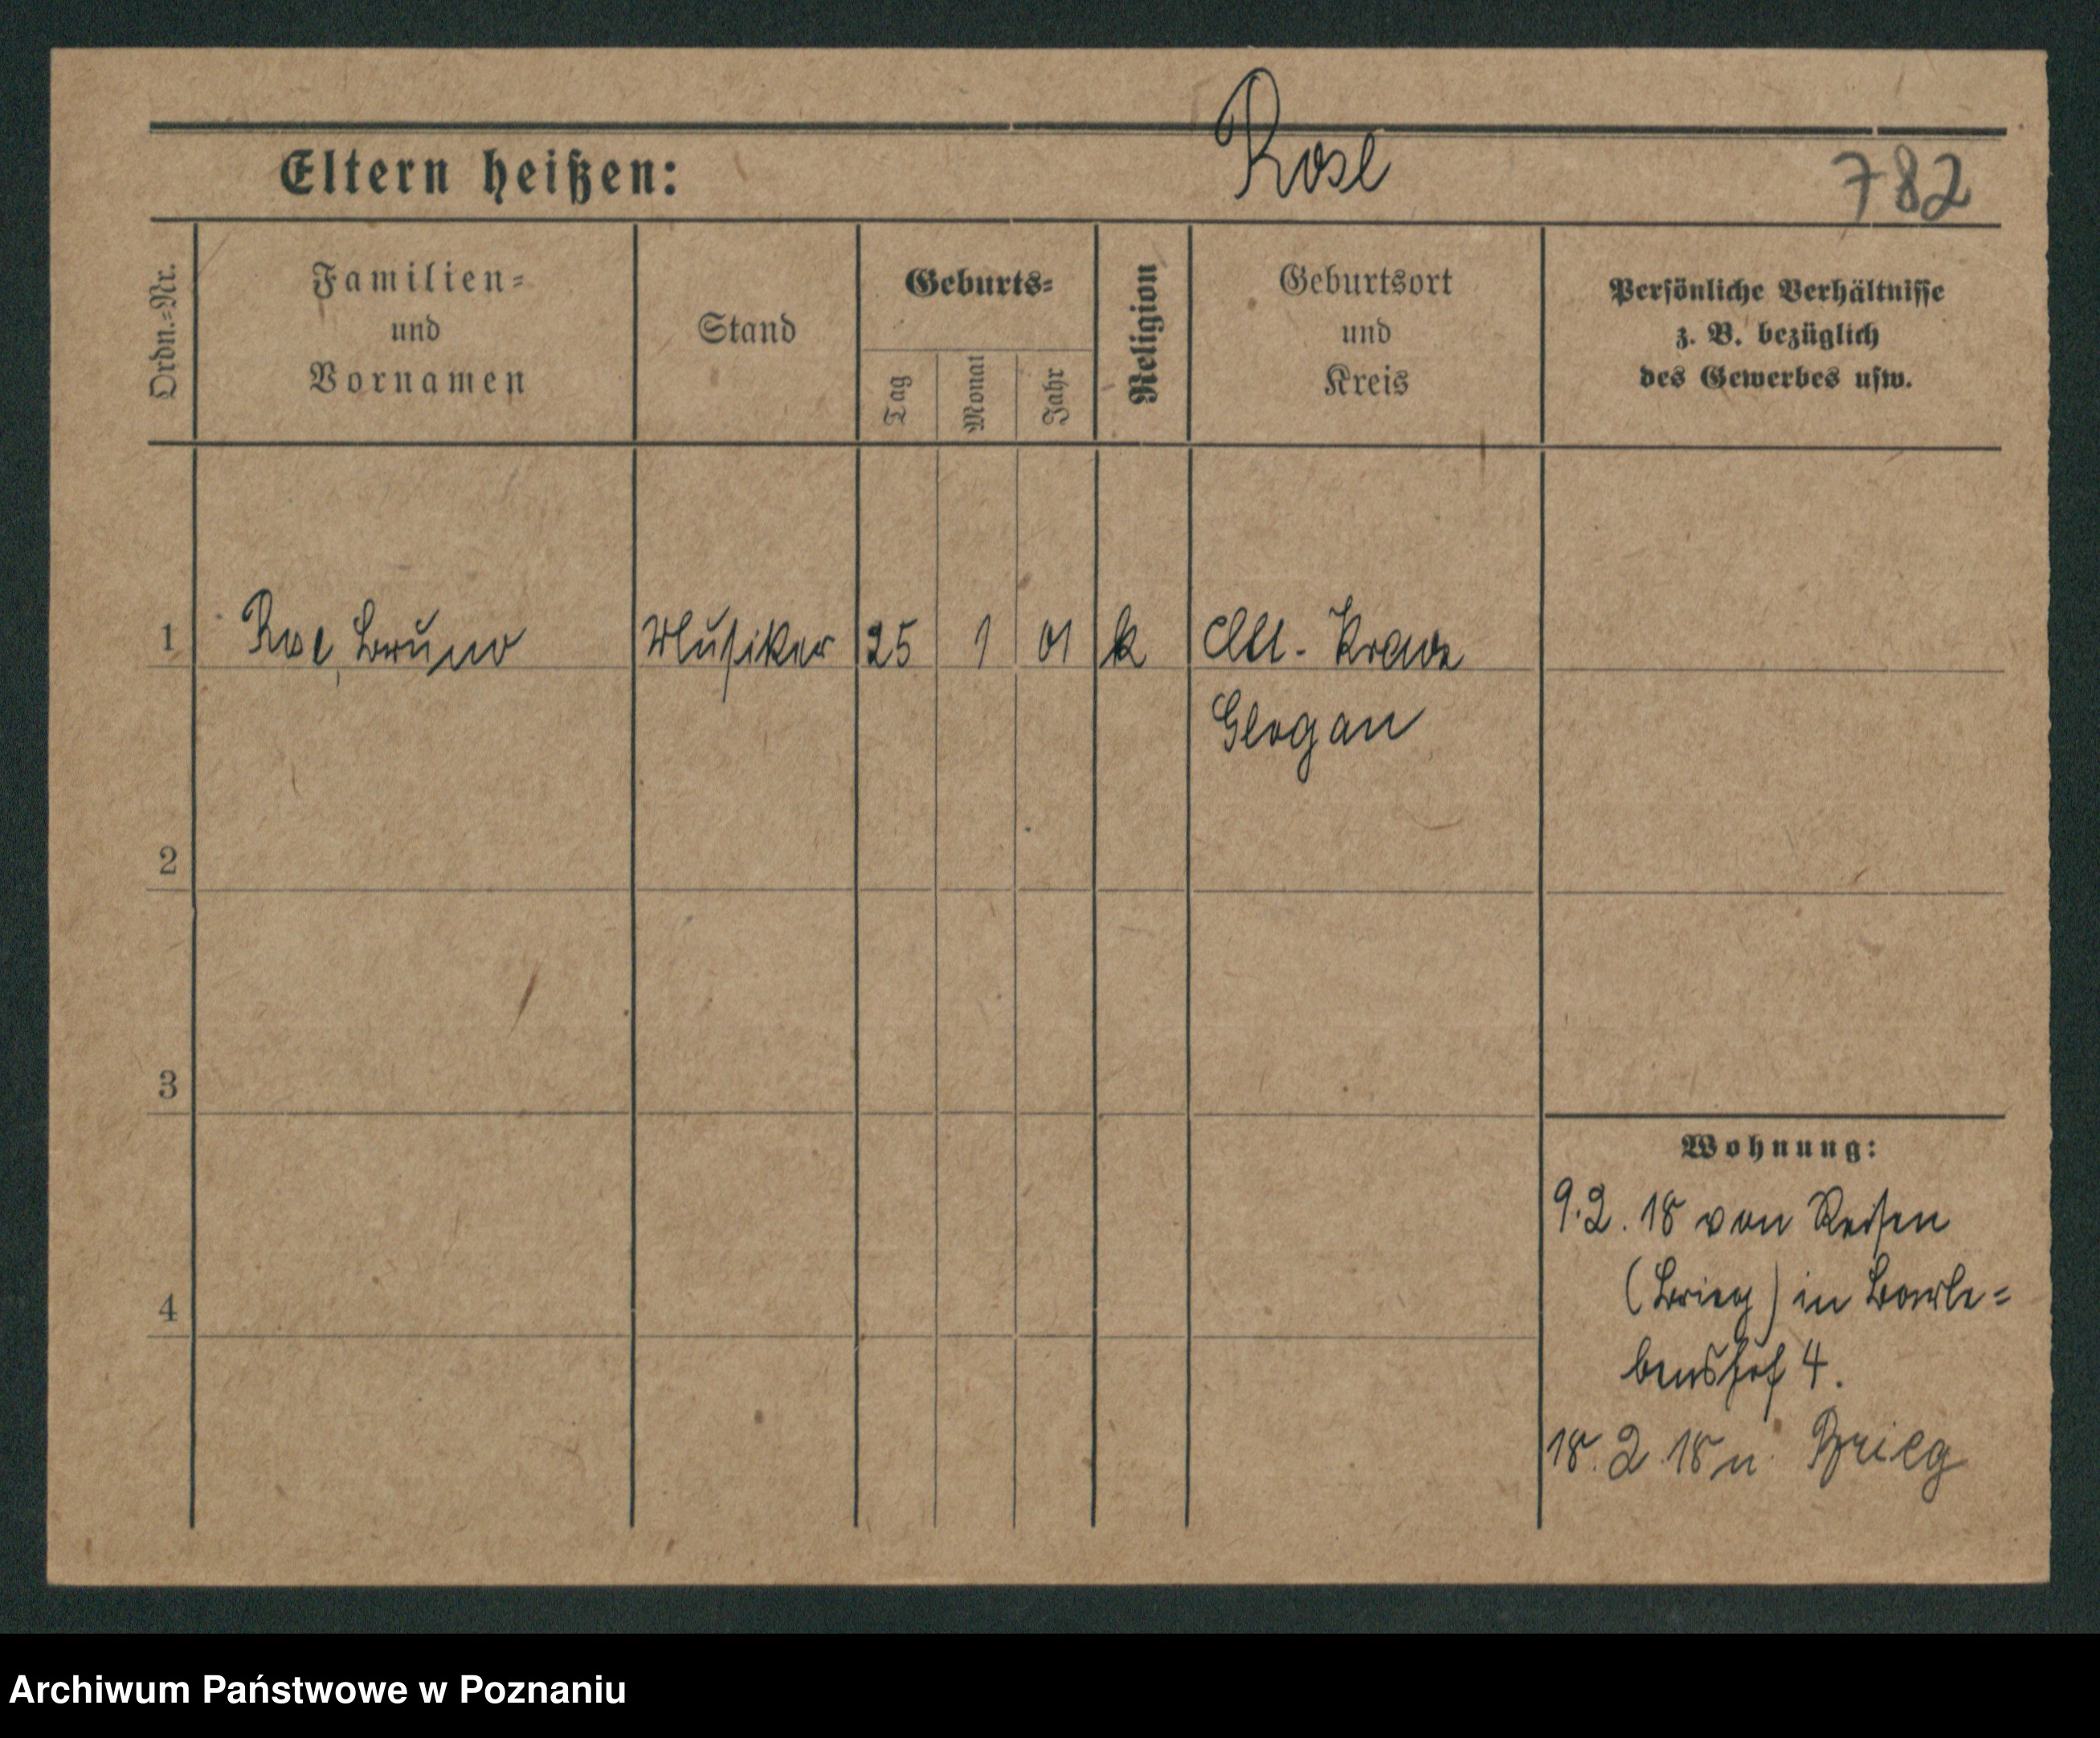 Rose
Eltern heißen:
782
Ordn.-Nr.
Familien-
und
Vornamen
Stand
Geburts-
Tag
Monat
Jahr
Religion
Geburtsort
und
Kreis
Persönliche Verhältnisse
z. B. bezüglich
des Gewerbes usw.
1
Bruno
Musiker
25
1
01
k
Alt-
Glogau
2
3
4
Wohnung:
9.2.18 von Reisen
(Brieg) in Barle=
benshof 4.
18.2.18 n. Brieg
Archiwum Państwowe w Poznaniu